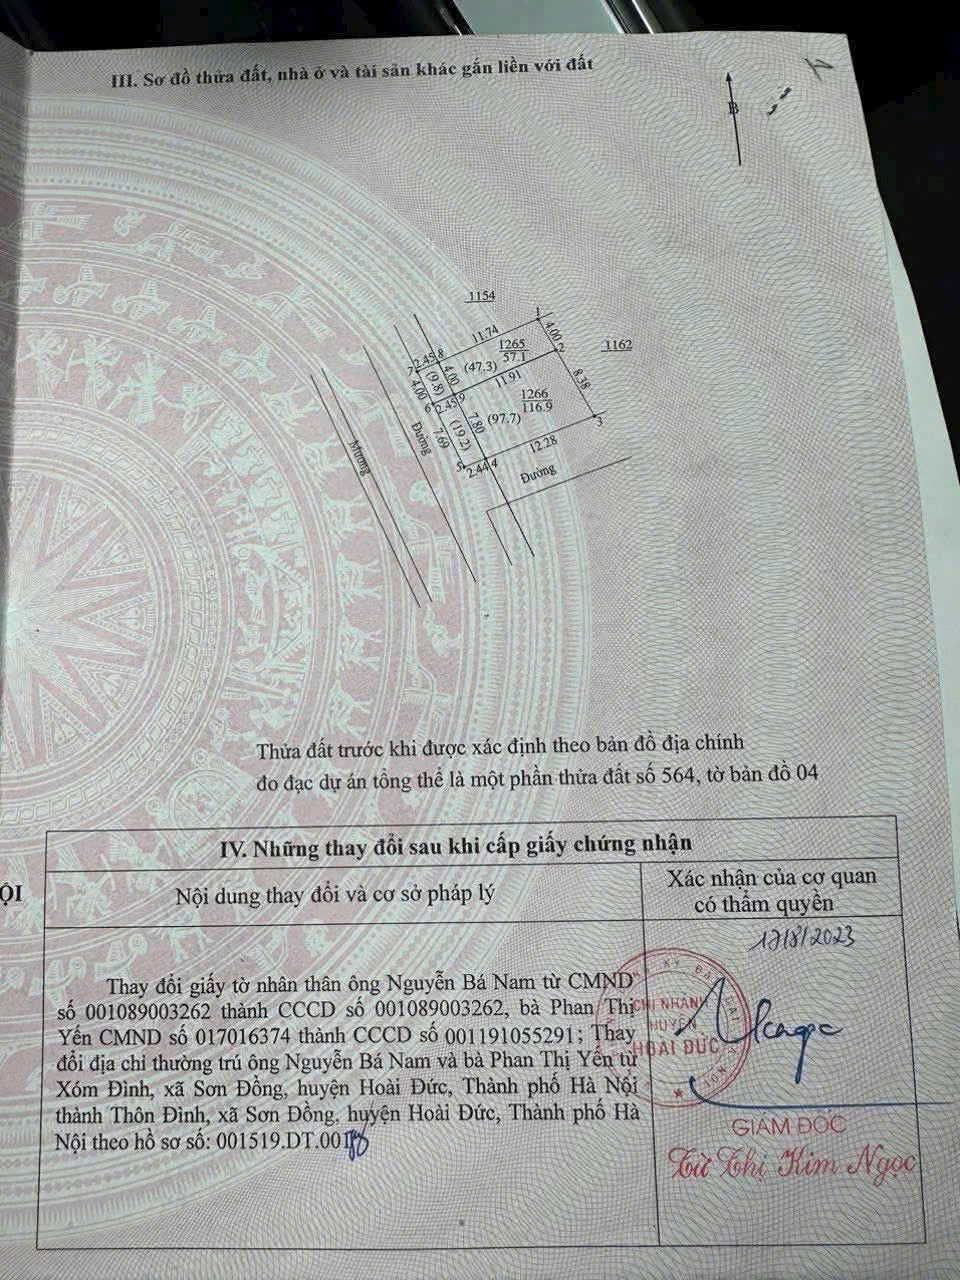 III. Sơ đồ thửa đất, nhà ở và tài sản khác gắn liền với đất
B
1154
1
11.74
4.00
2
1162
1265
57.1
7
2.45
8
(47.3)
(9.8)
4.00
4.00
11.91
8.38
6
2.45
9
1266
116.9
(97.7)
7.80
(19.2)
7.69
3
12.28
5
2.44
4
Đường
Đường
Mương
Thửa đất trước khi được xác định theo bản đồ địa chính
đo đạc dự án tổng thể là một phần thửa đất số 564, tờ bản đồ 04
IV. Những thay đổi sau khi cấp giấy chứng nhận
ỘI
Nội dung thay đổi và cơ sở pháp lý
Xác nhận của cơ quan
có thẩm quyền
17/8/2023
Thay đổi giấy tờ nhân thân ông Nguyễn Bá Nam từ CMND
số 001089003262 thành CCCD số 001089003262, bà Phan Thị
Yến CMND số 017016374 thành CCCD số 001191055291; Thay
đổi địa chỉ thường trú ông Nguyễn Bá Nam và bà Phan Thị Yến từ
Xóm Đình, xã Sơn Đồng, huyện Hoài Đức, Thành phố Hà Nội
thành Thôn Đình, xã Sơn Đồng, huyện Hoài Đức, Thành phố Hà
Nội theo hồ sơ số: 001519.DT.001
CHI NHÁNH
HUYỆN
HOÀI ĐỨC
GIÁM ĐỐC
Từ Thị Kim Ngọc